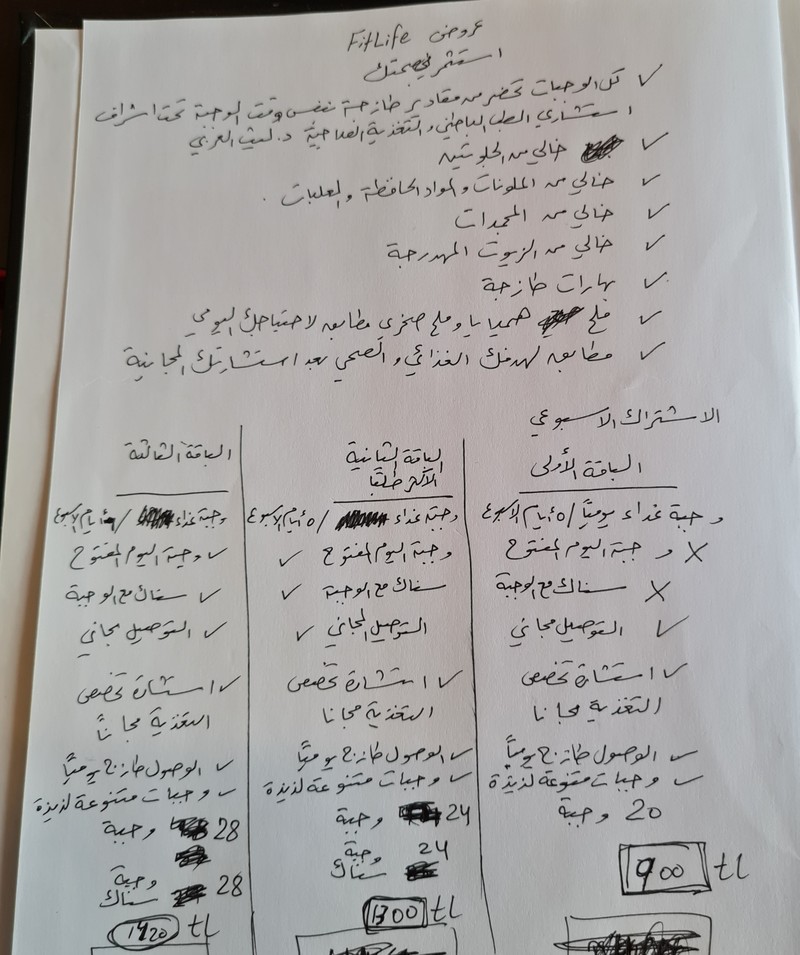 عروض FitLife
استثمر في صحتك
✓ كل الوجبات تحضر من مقادير طازجة بنفس وقت الوجبة تحت اشراف
استشاري الطب الباطني والتغذية العلاجية د. ليث العزبي
✓ خالي من الجلوتين
✓ خالي من الملونات والمواد الحافظة والمعلبات .
✓ خالي من المجمدات
✓ خالي من الزيوت المهدرجة
✓ بهارات طازجة
✓ ملح همملايا وملح صخري مطابقه لاحتياجك اليومي
✓ مطابقه لهدفك الغذائي والصحي بعد استشارتك المجانية
الاشتراك الاسبوعي
الباقة الأولى
وجبة غداء يومياً / ٥ أيام الاسبوع
X وجبة اليوم المفتوح
X سناك مع الوجبة
✓ التوصيل مجاني
✓ استشارة تخصص
التغذية مجانا
✓ الوصول طازج يومياً
✓ وجبات متنوعة لذيذة
20 وجبة
900 tl
الباقة الثانية
الأكثر طلبًا
وجبة غداء / ٥ أيام الاسبوع
وجبة اليوم المفتوح ✓
سناك مع الوجبة ✓
التوصيل المجاني ✓
✓ استشارة تخصص
التغذية مجانا
✓ الوصول طازج يومياً
✓ وجبات متنوعة لذيذة
24 وجبة
24 وجبة
سناك
1300 tl
الباقة الثالثة
وجبة غداء / أيام الاسبوع
✓ وجبة اليوم المفتوح
✓ سناك مع الوجبة
✓ التوصيل مجاني
✓ استشارة تخصص
التغذية مجاناً
✓ الوصول طازج يومياً
✓ وجبات متنوعة لذيذة
28 وجبة
28 وجبة
سناك
tl